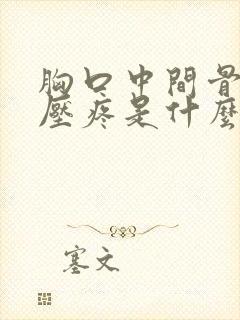 胸口中間骨
壓疼是什麼
塞文